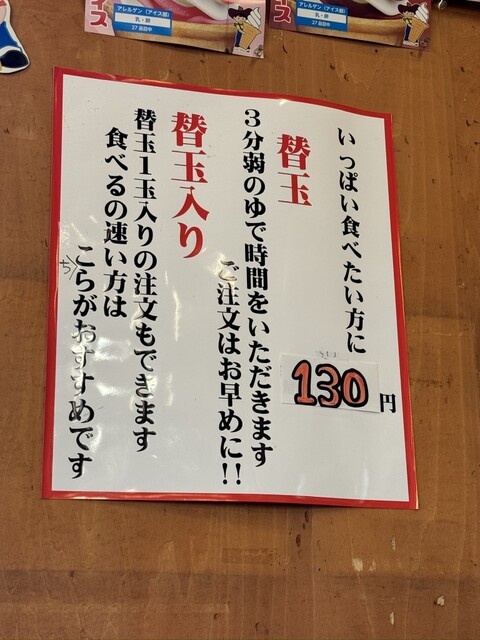 イス
アレルゲン(アイス部)
乳・卵
イス
アレルゲン(アイス部)
乳・卵
いっぱい食べたい方に
替玉
130円
3分弱のゆで時間をいただきます
ご注文はお早めに!!
替玉入り
替玉1玉入りの注文もできます
食べるの速い方は
こらがおすすめです
ち